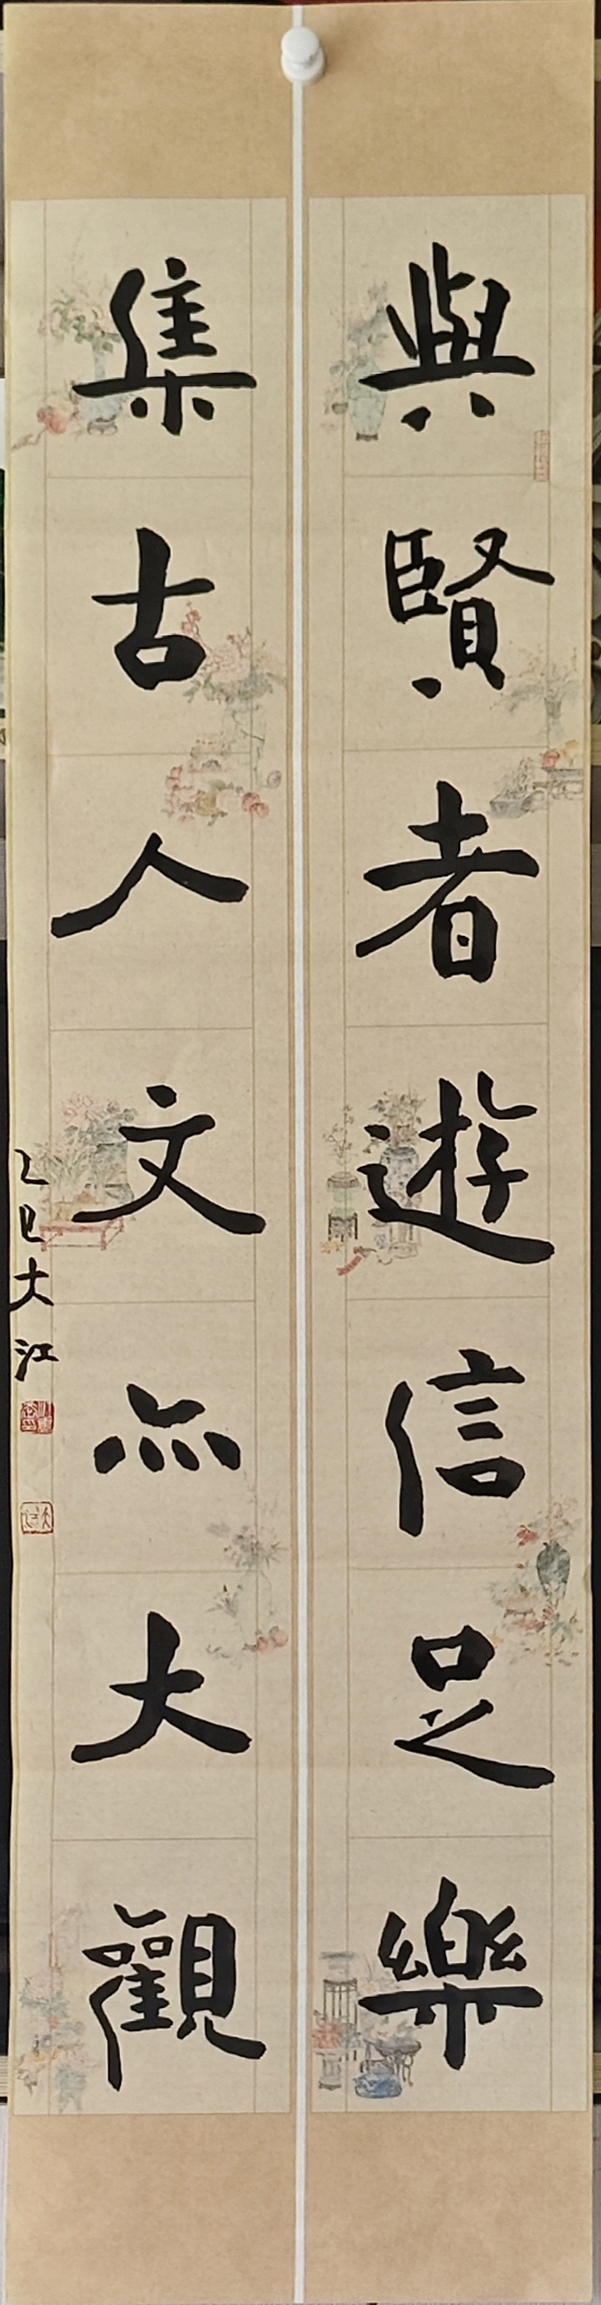 與賢者遊信足樂
集古人文亦大觀
乙巳大江